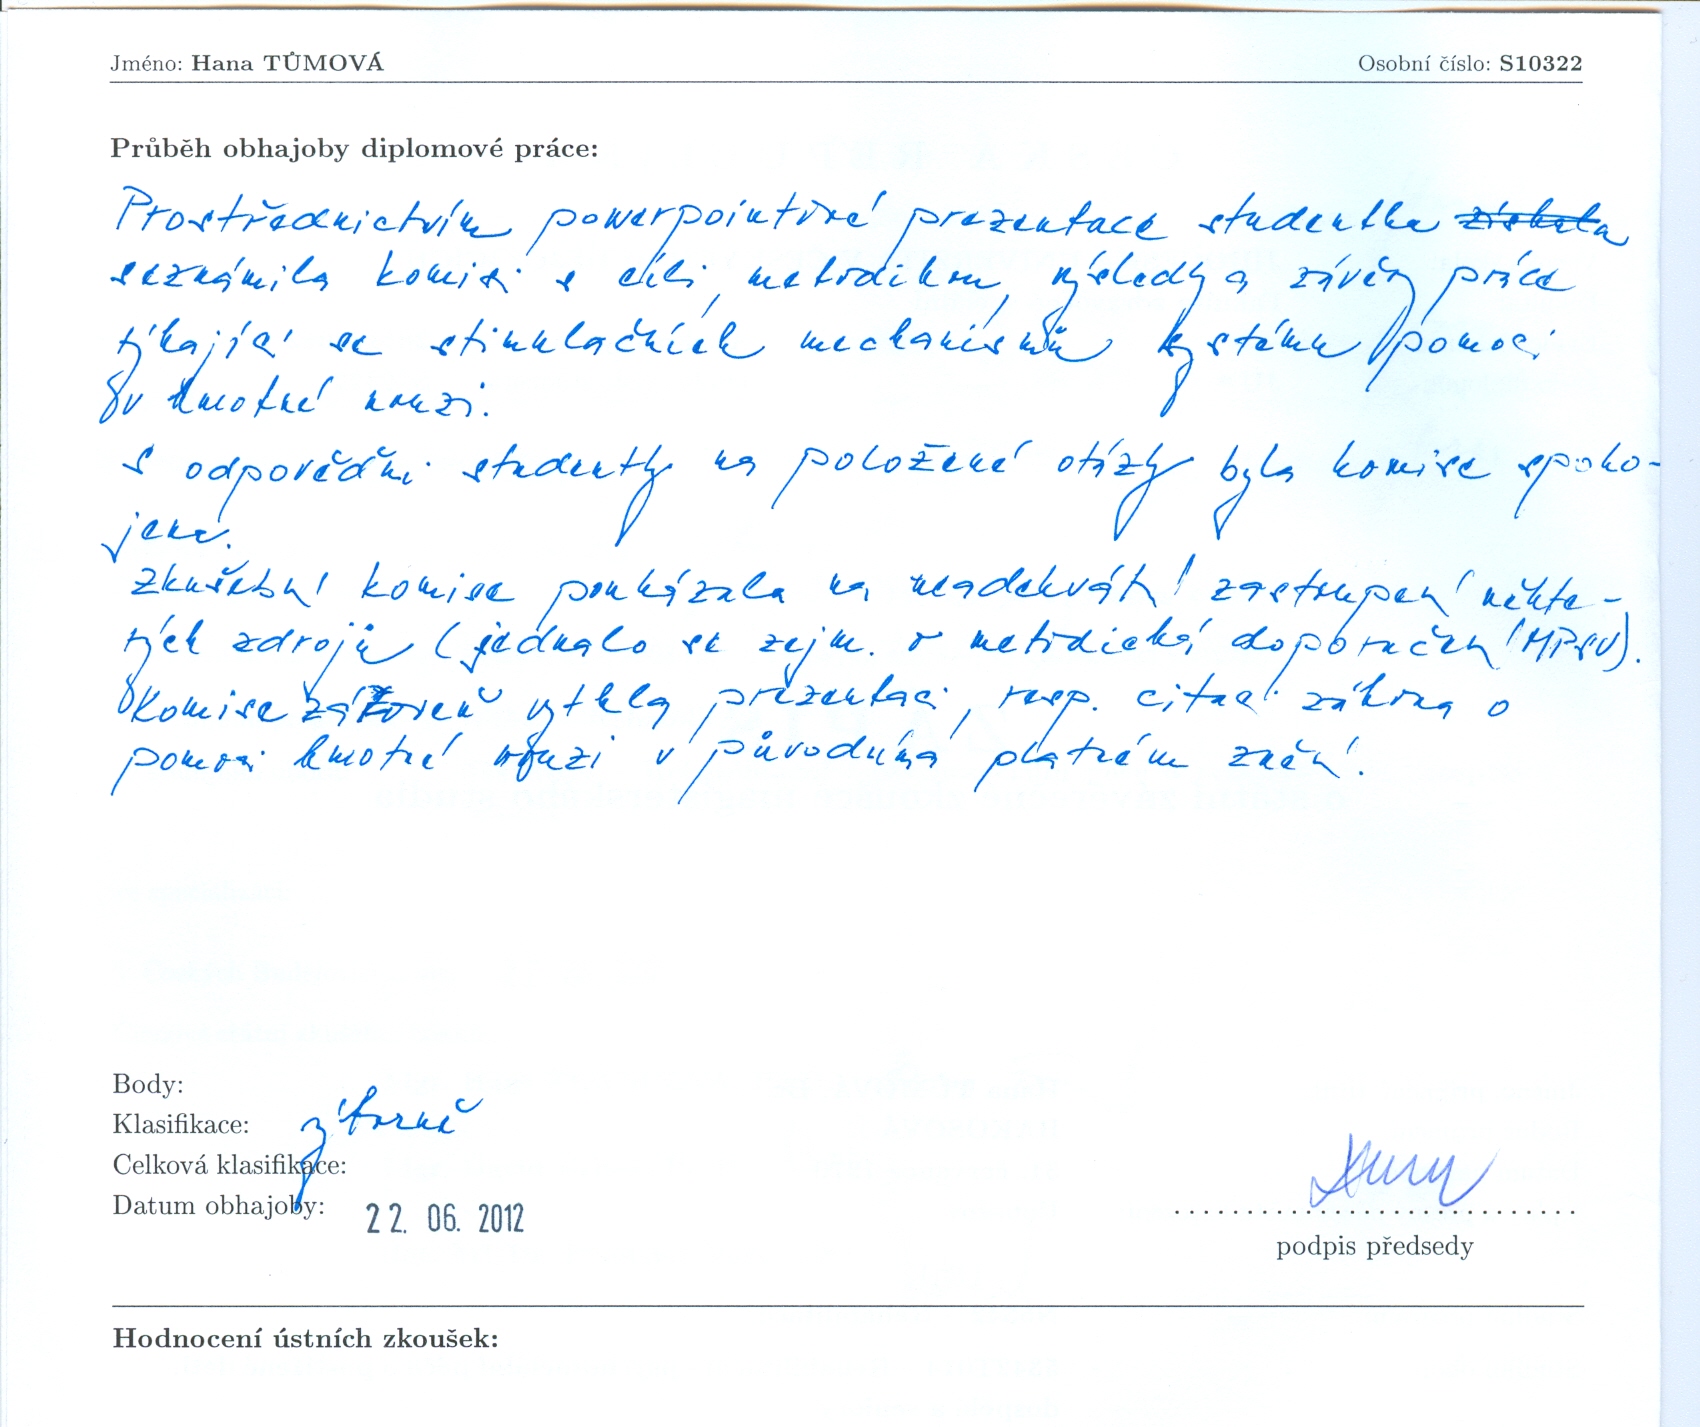 Jméno: Hana TŮMOVÁ Osobní číslo: S10322
Průběh obhajoby diplomové práce:
Prostřednictvím powerpointové prezentace studentka získala
seznámila komisi s cíli, metodikou, výsledky a závěry práce
týkající se stimulačních mechanismů systému pomoci
v hmotné nouzi.
S odpověďmi studentky na položené otázky byla komise spoko-
jena.
Zkušební komise poukázala na neadekvátní zastoupení někte-
rých zdrojů (jednalo se zejm. o metodická doporučení MPSV).
Komise zároveň vytkla prezentaci, resp. citaci zákona o
pomoci hmotné nouzi v původním platném znění.
Body:
Klasifikace: výborně
Celková klasifikace:
Datum obhajoby: 22. 06. 2012
podpis předsedy
Hodnocení ústních zkoušek: